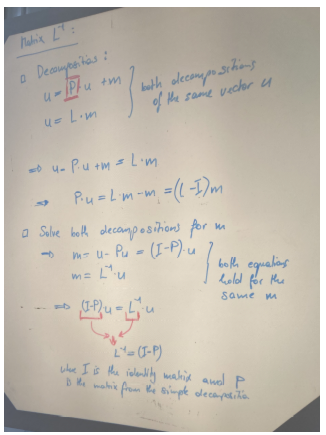 Matrix L⁻¹ :
□ Decompositions :
u = P·u + m
u = L·m
both decompositions
of the same vector u
⇒ u = P·u + m = L·m
⇒ P·u = L·m - m = (L-I)m
□ Solve both decompositions for m
→ m = u - Pu = (I-P)·u
m = L⁻¹·u
both equations
hold for the
same m
⇒ (I-P)u = L⁻¹·u
L⁻¹ = (I-P)
where I is the identity matrix and P
is the matrix from the simple decomposition